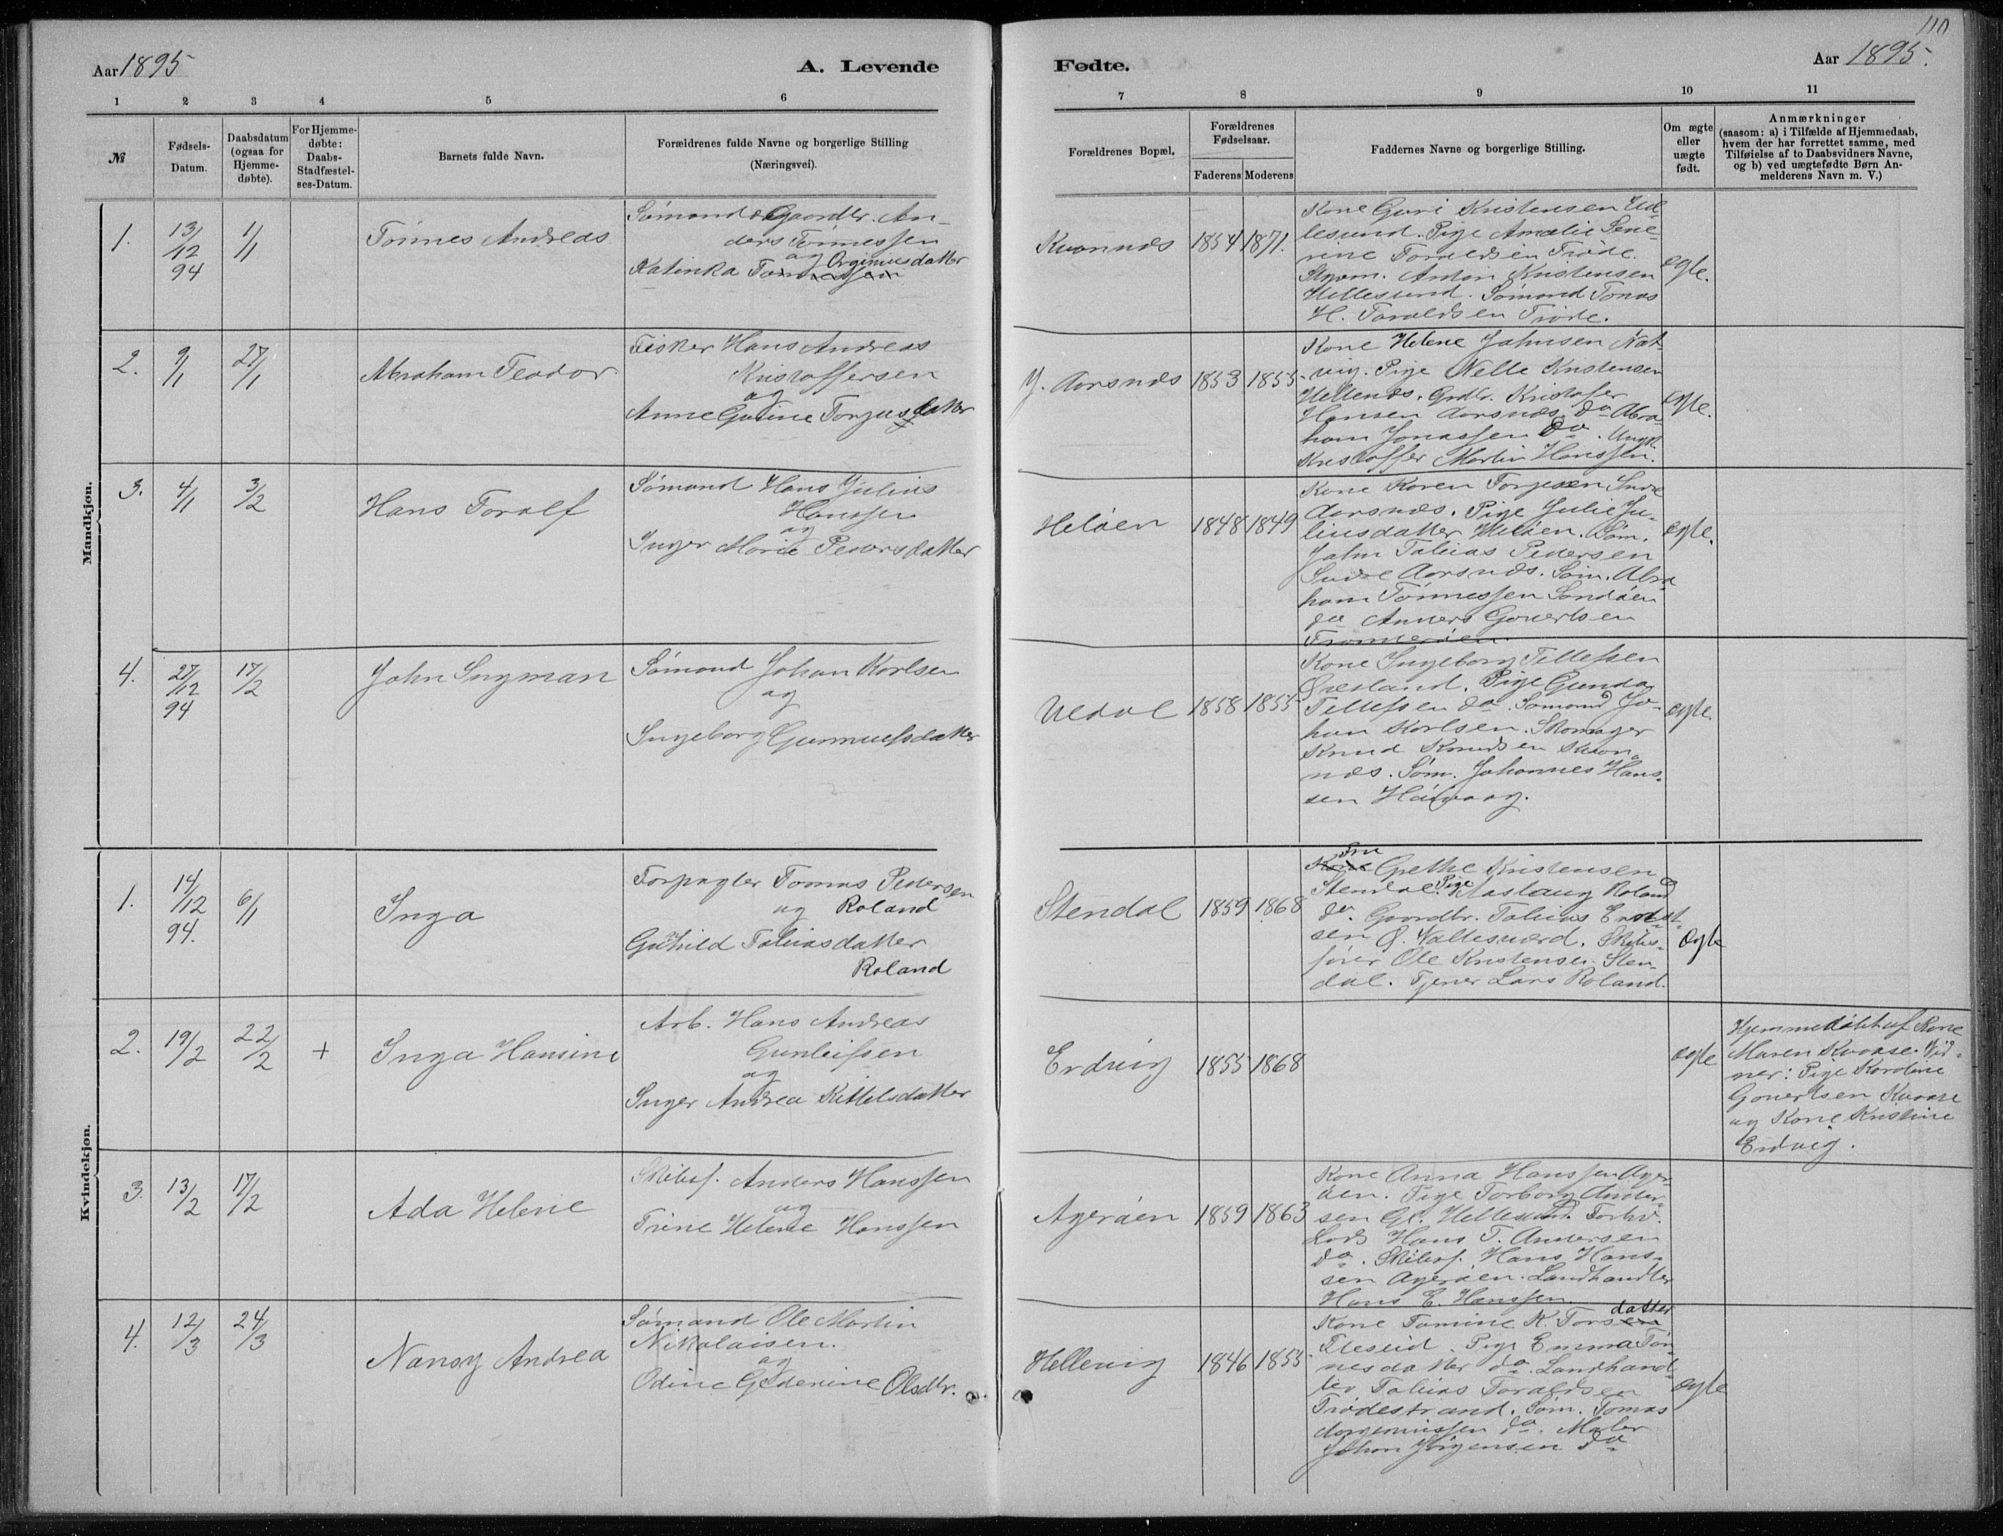 110
Aar 1895
A. Levende
Fødte.
Aar 1895.
1 2 3 4 5 6 7 8 9 10 11
№
Fødsels-
Datum.
Daabsdatum
(ogsaa for
Hjemme-
døbte).
For Hjemme-
døbte:
Daabs-
Stadfæstel-
ses-Datum.
Barnets fulde Navn.
Forældrenes fulde Navne og borgerlige Stilling
(Næringsvei).
Forældrenes Bopæl.
Forældrenes
Fødselsaar.
Faderens Moderens
Faddernes Navne og borgerlige Stilling.
Om ægte
eller
uægte
født.
Anmærkninger
(saasom: a) i Tilfælde af Hjemmedaab,
hvem der har forrettet samme, med
Tilføielse af to Daabsvidners Navne,
og b) ved uægtefødte Børn An-
melderens Navn m. V.)
Mandkjøn.
1.
13/12
94
1/1
Tønnes Andreas
Sømand & Gaardbr. An-
ders Tønnessen
og
Katinka Tønnessen Orginiusdatter
Kvarnnæs
1854 1871.
Kone Guri Kristensen Ul-
lesund. Pige Amalie Sene-
rine Taraldsen Trøde.
Anton Kristensen
Hellesund. Sømand Tomas
H. Taraldsen Trøde.
ægte.
2.
9/1
27/1
Abraham Teodor
Fisker Hans Andreas
Kristoffersen
og
Anne Gurine Torjusdatter
Y. Aarsnæs
1853 1855
Kone Helene Jahnsen Nat-
vig. Pige Nelle Kristensen
Hellenæs. Grdbr. Kristofer
Hansen Aarsnæs, Do Abra-
ham Jonassen Do. Ungk.
Kristoffer Martin Hanssen.
ægte.
3.
4/1
3/2
Hans Toralf
Sømand Hans Julius
Hanssen
og
Inger Marie Pedersdatter
Heløen
1848 1849
Kone Karen Torjesen Indre
Aarsnæs. Pige Julie Ju-
liusdatter Heløen. Søm.
Jahn Tobias Pedersen
Indre Aarsnæs. Søm. Abra
ham Tønnessen Sandøen
do Anners Govertsen
Tromøen
ægte.
4.
27/12
94
17/2
John Ingman
Sømand Johan Karlsen
og
Ingeborg Gunnufsdatter
Uldal
1858 1855
Kone Ingeborg Tellefsen
Øresland. Pige Gunda
Tellefsen do. Sømand Jo-
han Karlsen. Skomager
Knud Knudsen Kvar-
næs. Søm. Johannes Hans-
sen Høivaag.
ægte.
Kvindekjøn.
1.
14/12
94.
6/1
Inga
Forpagter Tomas Pedersen
og Roland
Gunhild Tobiasdatter
Roland
Stendal
1859 1868
Kone Fru Grethe Kristensen
Stendal. Pige Aaslaug Roland
do. Gaardbr. Tobias Ernst-
sen Ø. Vallesværd. Skibs-
fører Ole Kristensen Sten-
dal. Tjener Lars Roland.
ægte
2.
19/2
22/2
+
Inga Hansine
Arb. Hans Andreas
Gunleifsen
og
Inger Andrea Kittelsdatter
Erdvig
1855 1868
ægte
Hjemmedøbt af Kone
Maren Kvaase. Vid-
ner: Pige Karoline
Govertsen Kvaase
og Kone Kristine
Erdvig.
3.
13/2
17/2
Ada Helene
Skibsf. Anders Hanssen
og
Trine Helene Hanssen
Agerøen
1859 1863
Kone Anna Hanssen Ager-
øen. Pige Torborg Ander-
sen Gl. Hellesund. Forhv.
Lods Hans T. Andersen
do. Skibsf. Hans Hans-
sen Agerøen. Landhandler
Hans E. Hanssen
4.
12/3
24/3
Nansy Andrea
Sømand Ole Martin
Nikolaisen.
og
Odine Gederine Olsdtr.
Hellevig
1846 1855
Kone Tomine K. Torsen datter
Fleseid. Pige Emma Tøn-
nesdatter do. Landhand-
ler Tobias Taraldsen
Trødestrand. Søm. Tomas
Jørgenussen do. Maler
Johan Jörgensen do
ægte